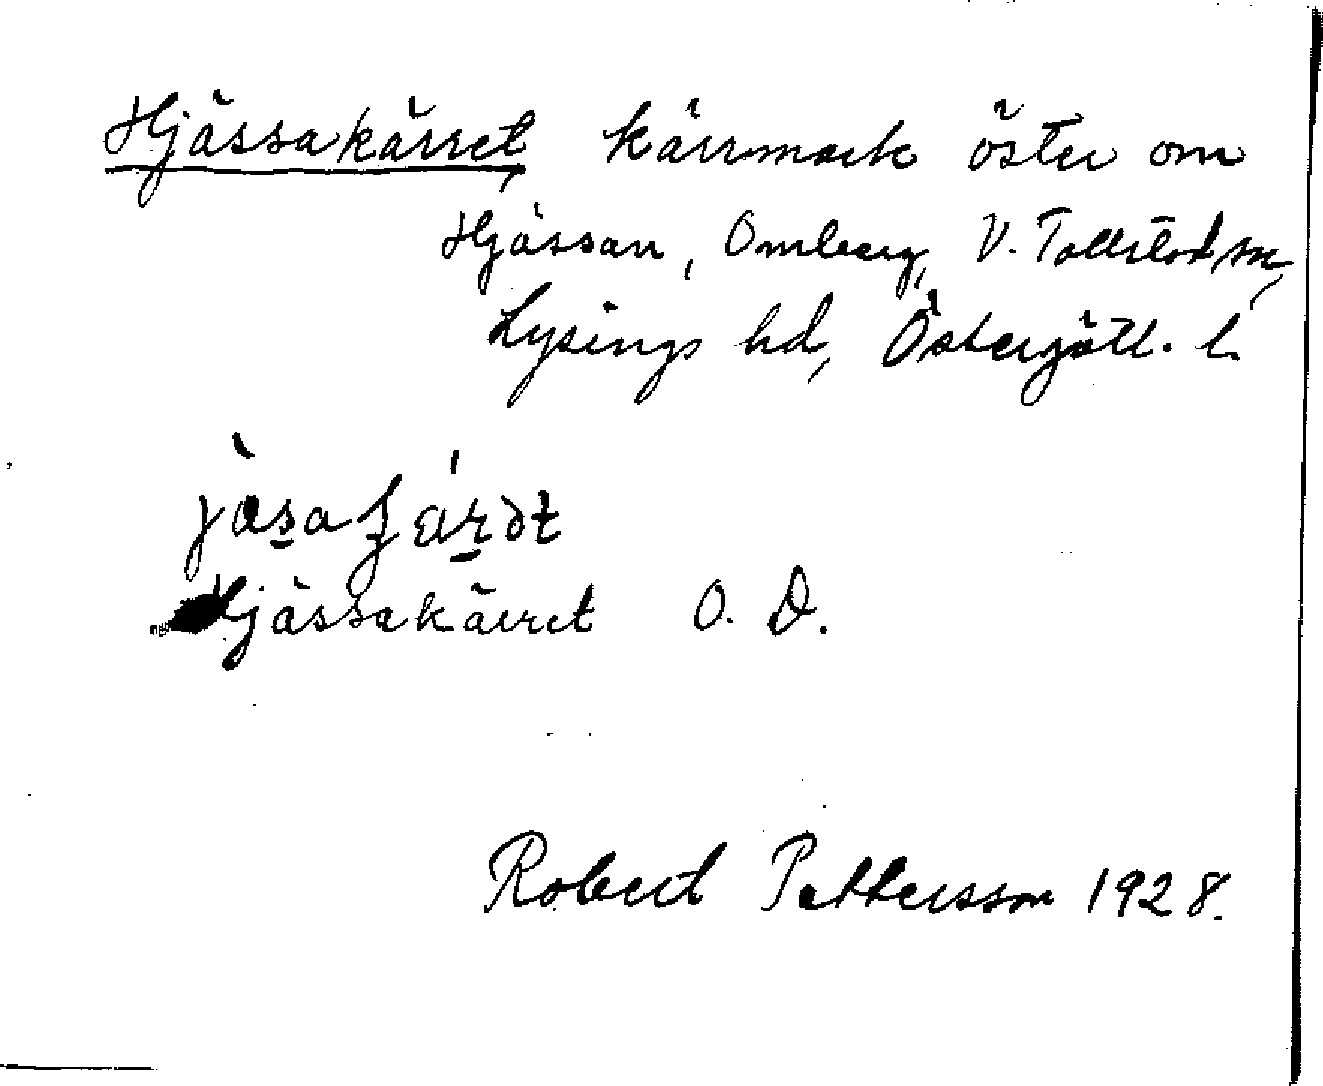 Hjässakärret, kärrmark öster om
Hjässan, Omberg, V. Tollstad sn,
Lysings hd, Östergötl. l.
Hjässakärret O. D.
Robert Pettersson 1928.